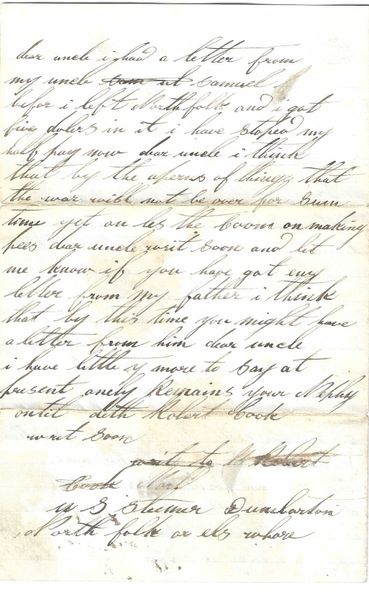 dear uncle i had a letter from
my uncle Samuel
befor i left Northfolk and i got
five dolers in it i have stoped my
half pay now dear uncle i think
that by the aperns of things that
the war will not be over for sum
time yet on les the Soom on making
pees dear uncle writ soon and let
me know if you have got eny
letter from my father i think
that by this time you might have
a letter from him dear uncle
i have little y more to say at
present onely Remains your Nephy
ontil deth Robert Cook
writ soon
Robert
Cook
U S Steemer Dumbarton
North folk or els whare